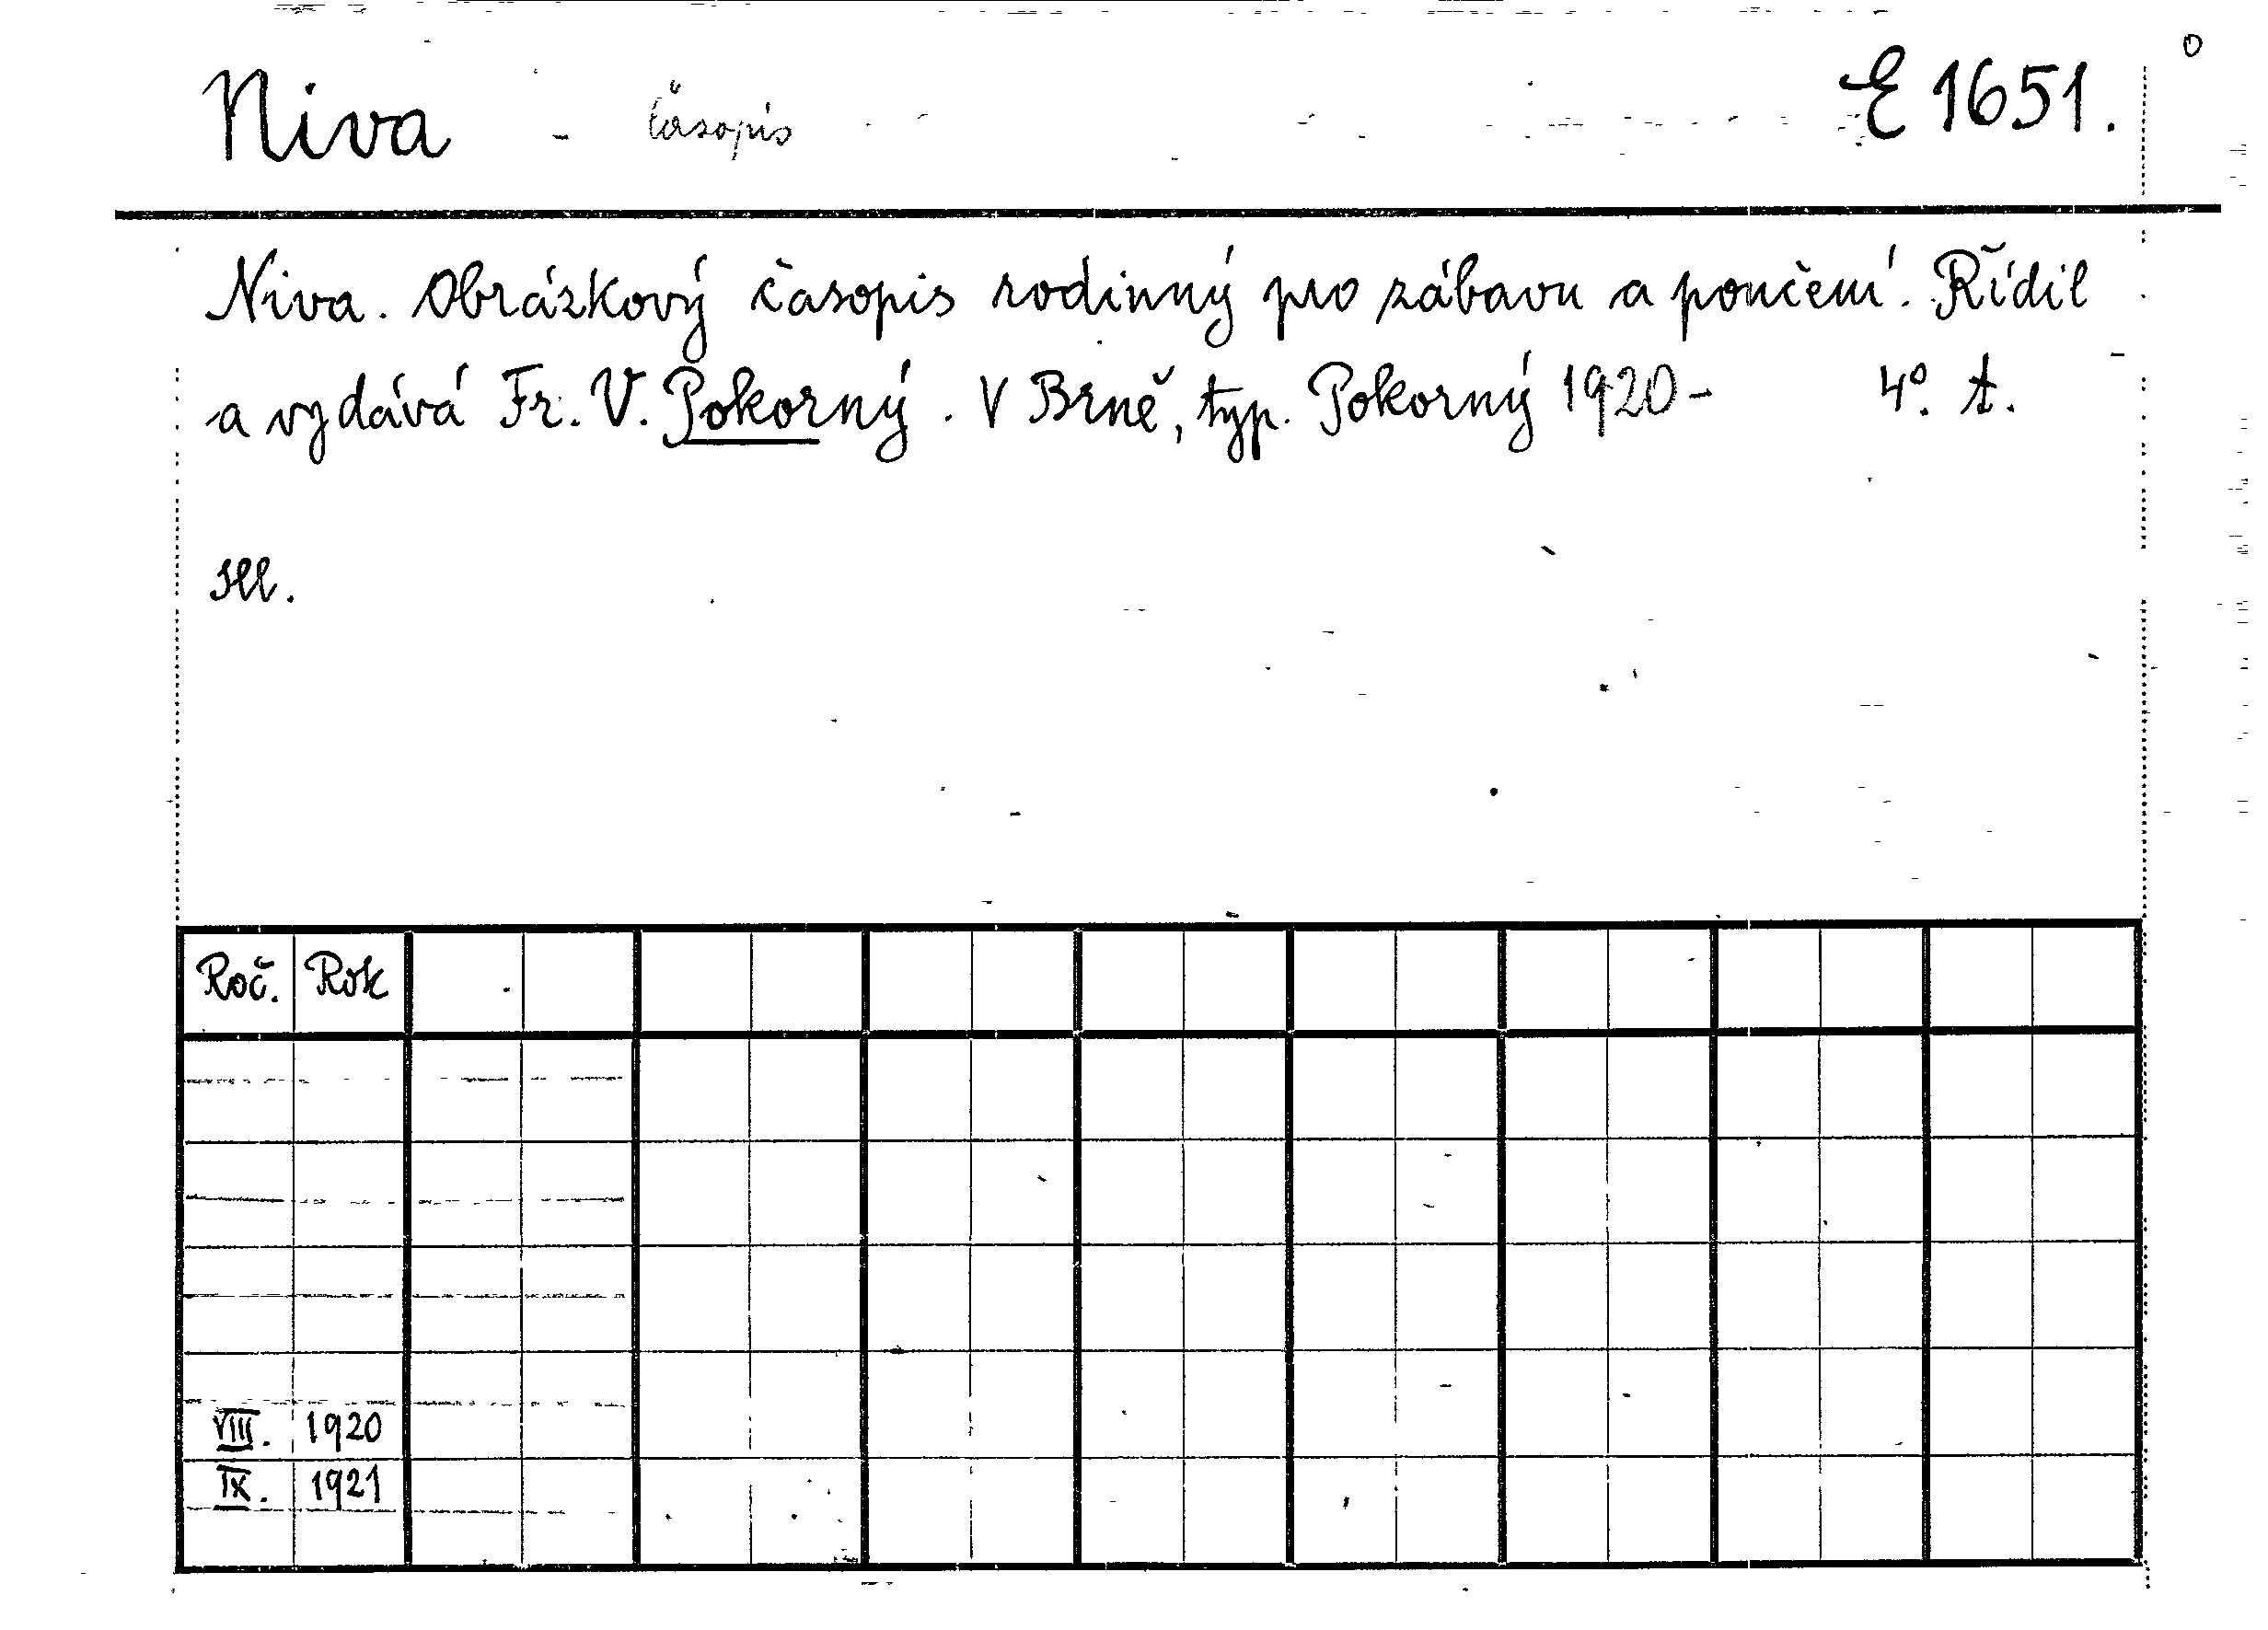 Niva - časopis E 1651.
Niva. Obrázkový časopis rodinný pro zábavu a poučení. Řídil
a vydává Fr. V. Pokorný. V Brně, typ. Pokorný 1920- 4°. t.
Ill.
Roč. Rok
VIII. 1920
IX. 1921